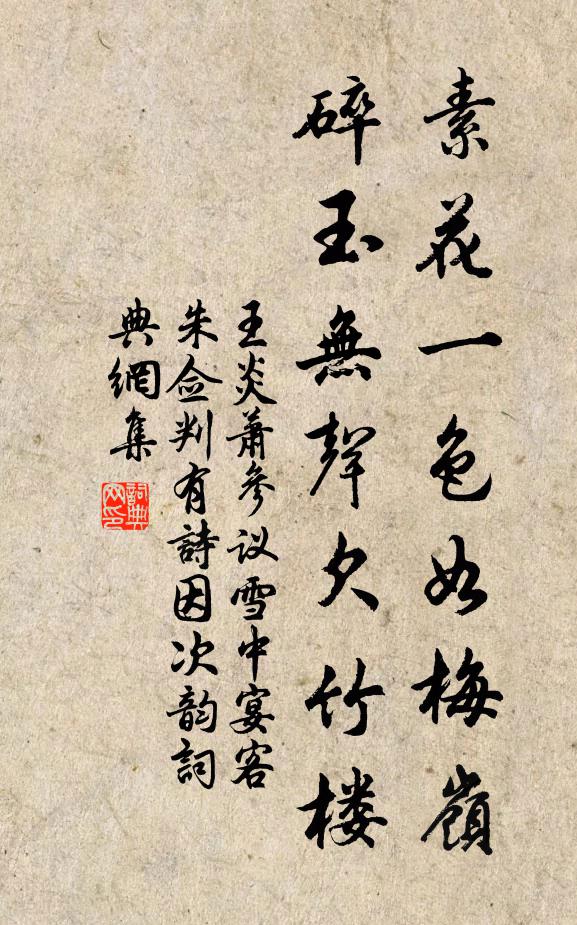 素花一色如梅嶺
碎玉無聲欠竹楼
王炎萧参议雪中宴客
朱佥判有詩因次韵詞
典網集
詞典
网印